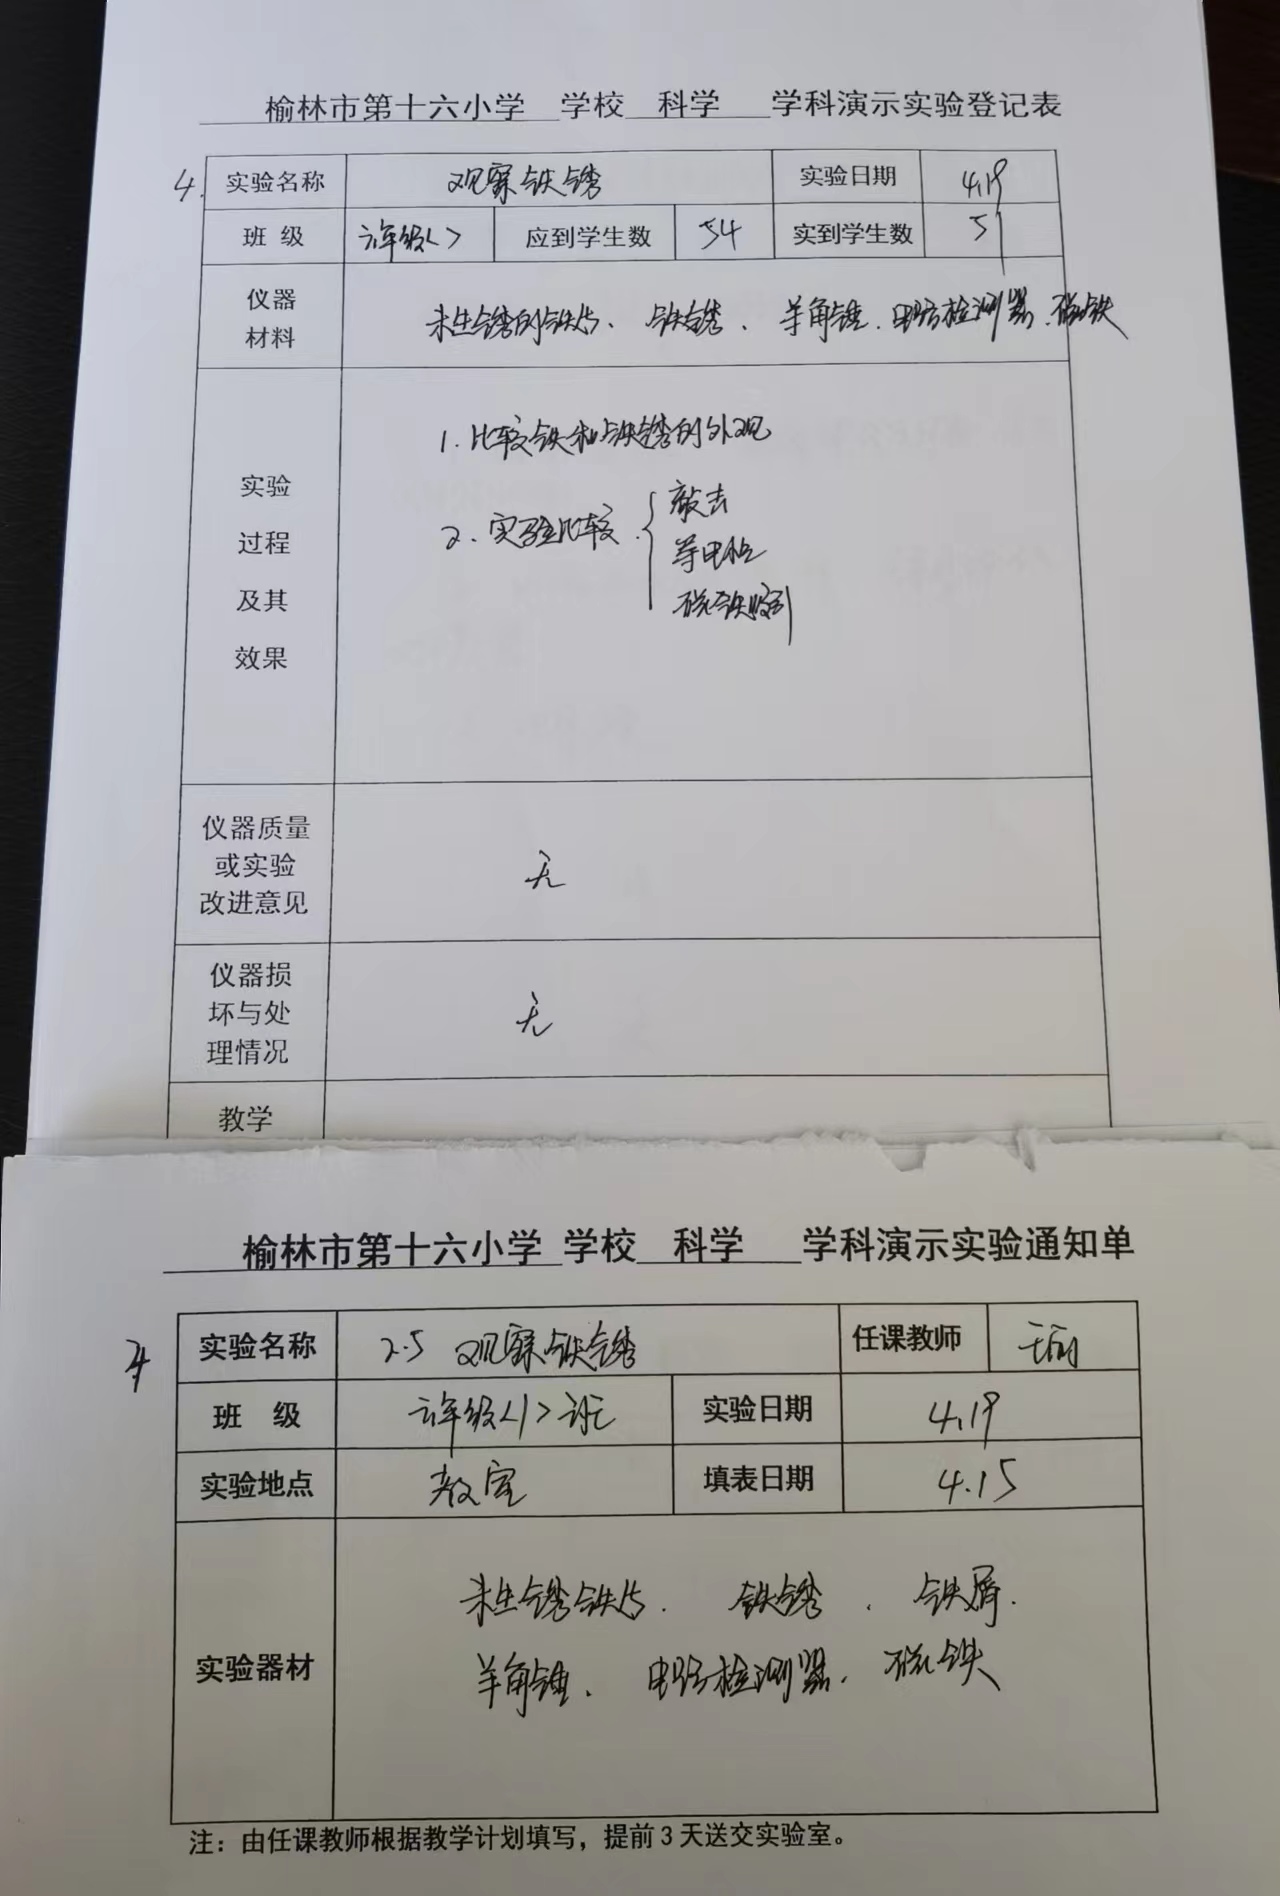 榆林市第十六小学 学校 科学 学科演示实验登记表
4. 实验名称 观察铁锈 实验日期 4.19
班 级 六年级< > 应到学生数 54 实到学生数 51
仪器
材料
未生锈的铁片、铁锈、羊角锤、电路检测器、磁铁
实验
过程
及其
效果
1. 比较铁和铁锈的外观
2. 实验比较 敲击
导电性
磁铁吸引
仪器质量
或实验
改进意见
无
仪器损
坏与处
理情况
无
教学
榆林市第十六小学 学校 科学 学科演示实验通知单
实验名称 2.5 观察铁锈 任课教师
班 级 六年级<1>班 实验日期 4.19
实验地点 教室 填表日期 4.15
实验器材
未生锈铁片、铁锈、铁屑、
羊角锤、电路检测器、磁铁
注：由任课教师根据教学计划填写，提前3天送交实验室。